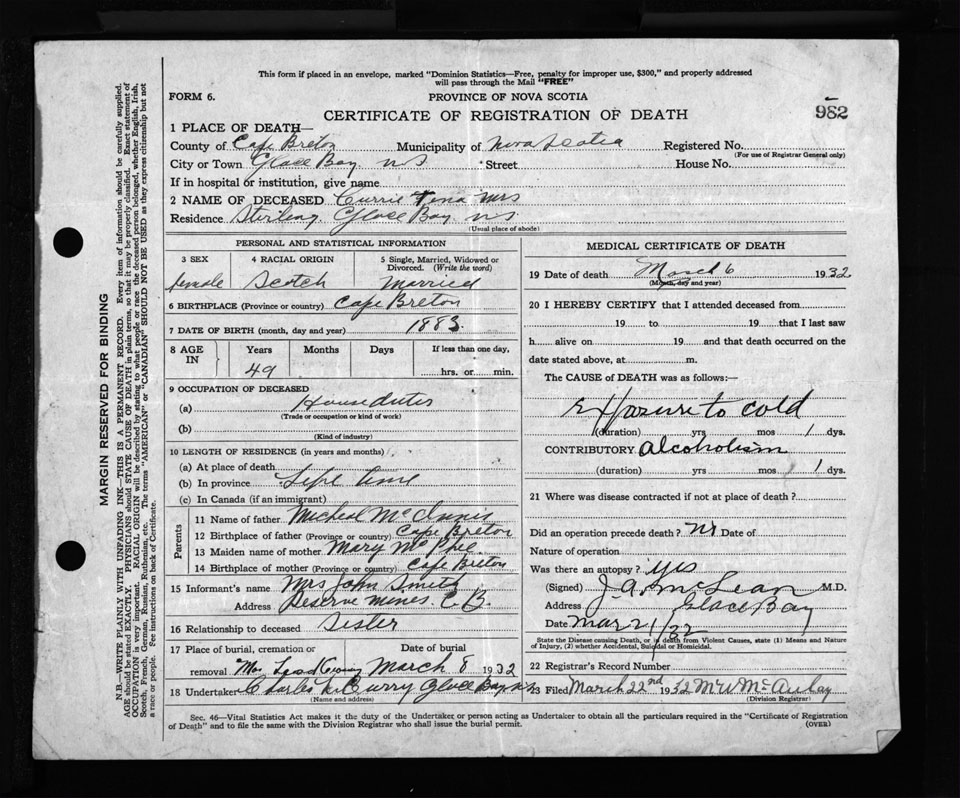 This form if placed in an envelope, marked "Dominion Statistics—Free, penalty for improper use, $300," and properly addressed
will pass through the Mail "FREE"
FORM 6.
PROVINCE OF NOVA SCOTIA
982
CERTIFICATE OF REGISTRATION OF DEATH
1 PLACE OF DEATH—
County of Cape Breton Municipality of Nova Scotia Registered No.
(For use of Registrar General only)
City or Town Glace Bay N S Street House No.
If in hospital or institution, give name
2 NAME OF DECEASED Currie Tena Mrs
Residence Sterling Glace Bay NS
(Usual place of abode)
PERSONAL AND STATISTICAL INFORMATION
3 SEX 4 RACIAL ORIGIN 5 Single, Married, Widowed or
Divorced. (Write the word)
female Scotch Married
6 BIRTHPLACE (Province or country) Cape Breton
7 DATE OF BIRTH (month, day and year) 1883
8 AGE IN Years Months Days If less than one day,
49 hrs. or min.
9 OCCUPATION OF DECEASED
(a) House duties
(Trade or occupation or kind of work)
(b)
(Kind of industry)
10 LENGTH OF RESIDENCE (in years and months)
(a) At place of death
(b) In province Life time
(c) In Canada (if an immigrant)
Parents
11 Name of father Micheal McInnis
12 Birthplace of father (Province or country) Cape Breton
13 Maiden name of mother Mary McPhee
14 Birthplace of mother (Province or country) Cape Breton
15 Informant's name Mrs John Smith
Address Reserve Mines C.B.
16 Relationship to deceased Sister
17 Place of burial, cremation or Date of burial
removal March 8 1932
18 Undertaker Charles Curry Glace Bay NS
(Name and address)
MEDICAL CERTIFICATE OF DEATH
19 Date of death March 6 1932
(Month, day and year)
20 I HEREBY CERTIFY that I attended deceased from
19 to 19 that I last saw
h alive on 19 and that death occurred on the
date stated above, at m.
The CAUSE of DEATH was as follows:—
Exposure to cold
(duration) yrs mos 1 dys.
CONTRIBUTORY Alcoholism
(duration) yrs mos 1 dys.
21 Where was disease contracted if not at place of death?
Did an operation precede death? no Date of
Nature of operation
Was there an autopsy? yes
(Signed) J. A. McLean M.D.
Address Glace Bay
Date Mar 21/32
State the Disease causing Death, or in death from Violent Causes, state (1) Means and Nature
of Injury, (2) whether Accidental, Suicidal or Homicidal.
22 Registrar's Record Number
23 Filed March 22nd 1932 McAulay
(Division Registrar)
Sec. 46—Vital Statistics Act makes it the duty of the Undertaker or person acting as Undertaker to obtain all the particulars required in the "Certificate of Registration
of Death" and to file the same with the Division Registrar who shall issue the burial permit.
(OVER)
MARGIN RESERVED FOR BINDING
N.B.—WRITE PLAINLY WITH UNFADING INK—THIS IS A PERMANENT RECORD. Every item of information should be carefully supplied.
AGE should be stated EXACTLY. PHYSICIANS should STATE CAUSE OF DEATH in plain terms, so that it may be properly classified. Exact statement of
OCCUPATION is very important. RACIAL ORIGIN will be described by stating to what people or race the deceased person belonged, whether English, Irish,
Scotch, French, German, Russian, Ruthenian, etc. The terms "AMERICAN" or "CANADIAN" SHOULD NOT BE USED as they express citizenship but not
a race or people. See instructions on back of Certificate.